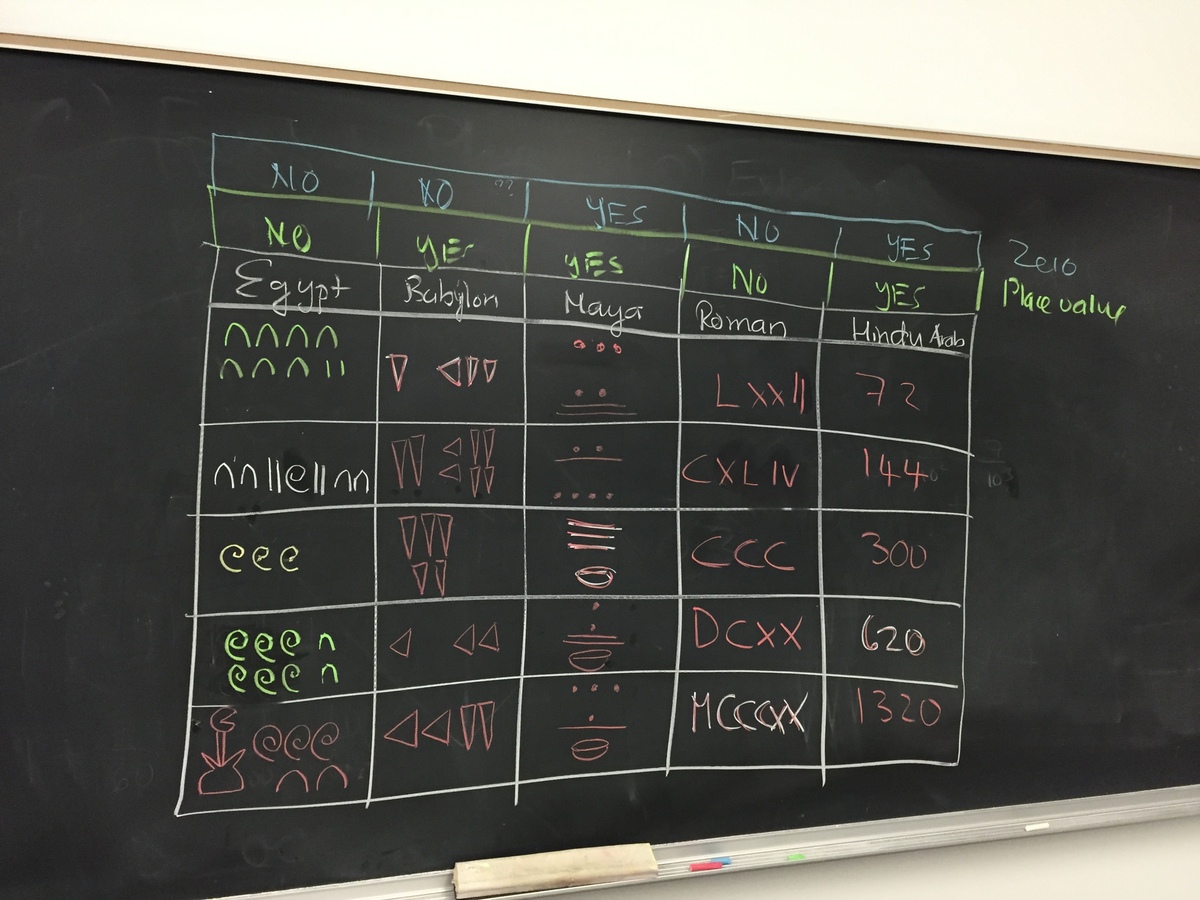 NO NO ?? YES NO YES Zero
NO YES YES NO YES Place value
Egypt Babylon Maya Roman Hindu Arab
LXXII 72
CXLIV 144
CCC 300
DCXX 620
MCCCXX 1320